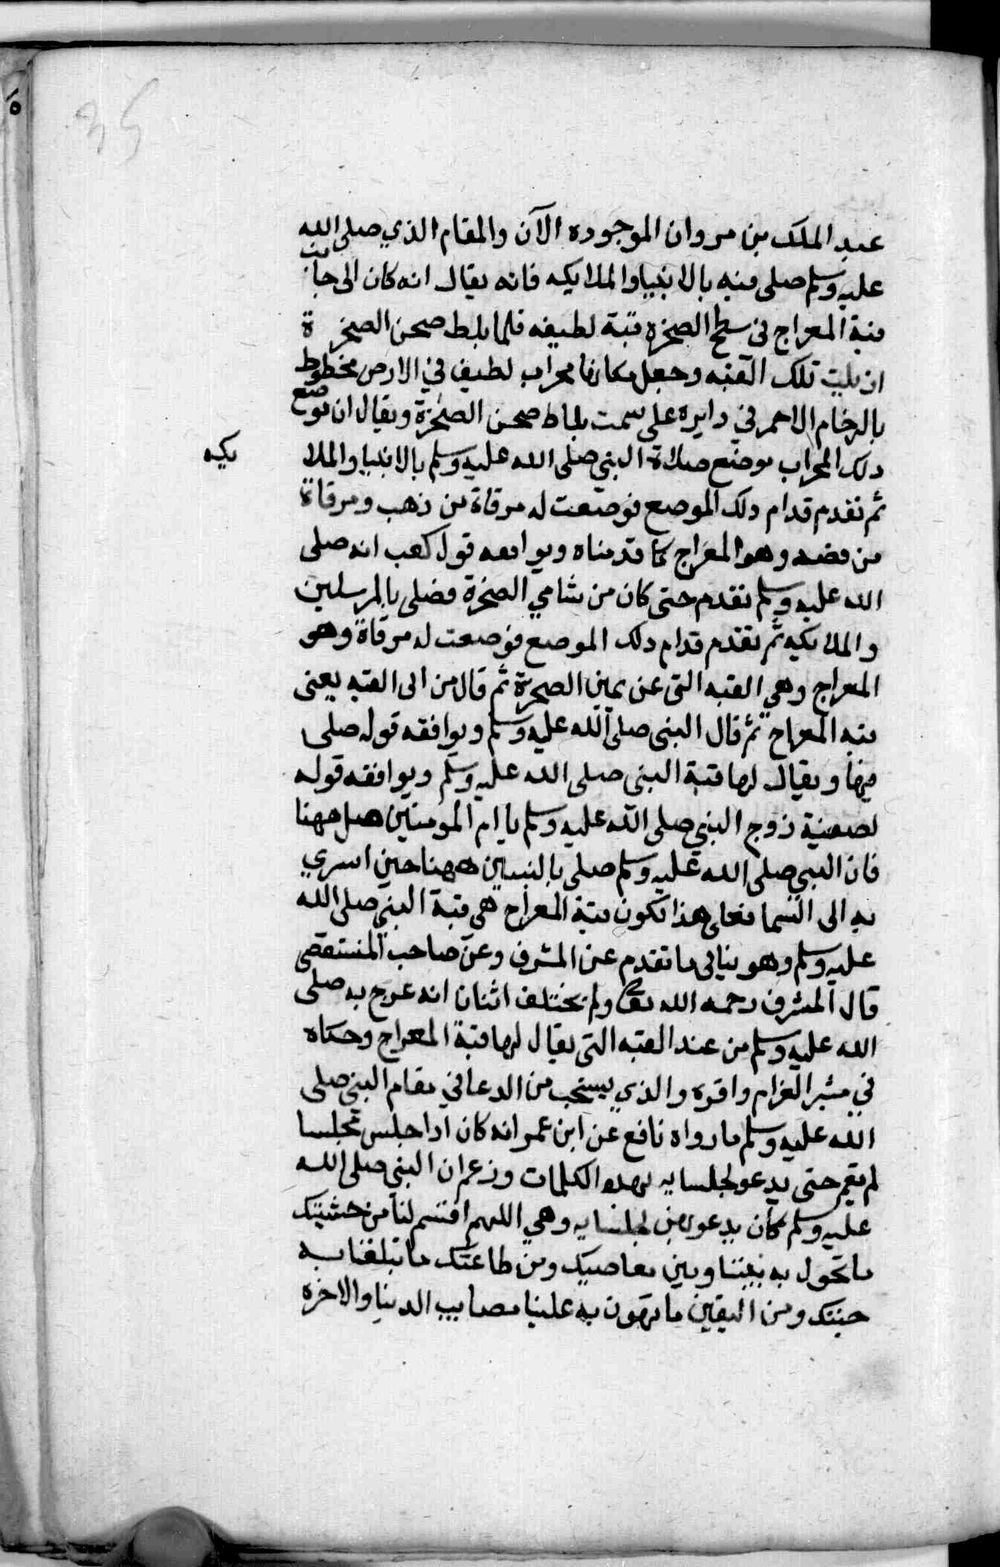 35
عبد الملك بن مروان الموجوده الآن والمقام الذي صلى الله
عليه وسلم صلى فيه بالانبيا والملايكه فانه يقال انه كان الى جانب
قبة المعراج في سطح الصخره قبة لطيفه فلما بلط صحن الصخرة
ازيلت تلك القبه وجعل مكانها محراب لطيف في الارض مخطوط
بالرخام الاحمر في دايره على سمت بلاط صحن الصخرة ويقال ان موضع
دلك المحراب موضع صلاة النبي صلى الله عليه وسلم بالانبيا والملا يكه
ثم تقدم قدام دلك الموضع فوضعت له مرقاة من ذهب ومرقاة
من فضه وهو المعراج كما قدمناه ويوافقه قول كعب انه صلى
الله عليه وسلم تقدم حتى كان من شامي الصخرة فصلى بالمرسلين
والملايكه ثم تقدم قدام دلك الموضع فوضعت له مرقاة وهو
المعراج وهي القبه التي عن يمين الصخرة ثم قال من اتى القبه يعنى
قبه المعراج ثم قال النبى صلى الله عليه وسلم ويوافقه قوله صلى
فيها ويقال لها قبة النبى صلى الله عليه وسلم ويوافقه قوله
لصفية زوج النبي صلى الله عليه وسلم يا ام المومنين صل ههنا
فان النبي صلى الله عليه وسلم صلى بالنبيين ههنا حين اسري
به الى السما فعلى هذا تكون قبة المعراج هي قبة النبي صلى الله
عليه وسلم وهو ينافي ما تقدم عن المشرف وعن صاحب المستقصى
قال المشرف رحمه الله تعالى ولم يختلف اثنان انه عرج به صلى
الله عليه وسلم من عند القبه التي يقال لها قبة المعراج وحكاه
في مثير الغرام واقره والذي يستحب من الدعا في مقام النبي صلى
الله عليه وسلم ما رواه نافع عن ابن عمر انه كان ادا جلس مجلسا
لم يقم حتى يدعو لجلسايه بهده الكلمات وزعم ان النبي صلى الله
عليه وسلم كان يدعو بهن لجلسايه وهي اللهم اقسم لنا من خشيتك
ما تحول به بيننا وبين معاصيك ومن طاعتك ما تبلغنا به
جنتك ومن اليقين ما تهون به علينا مصايب الدنيا والاخرة